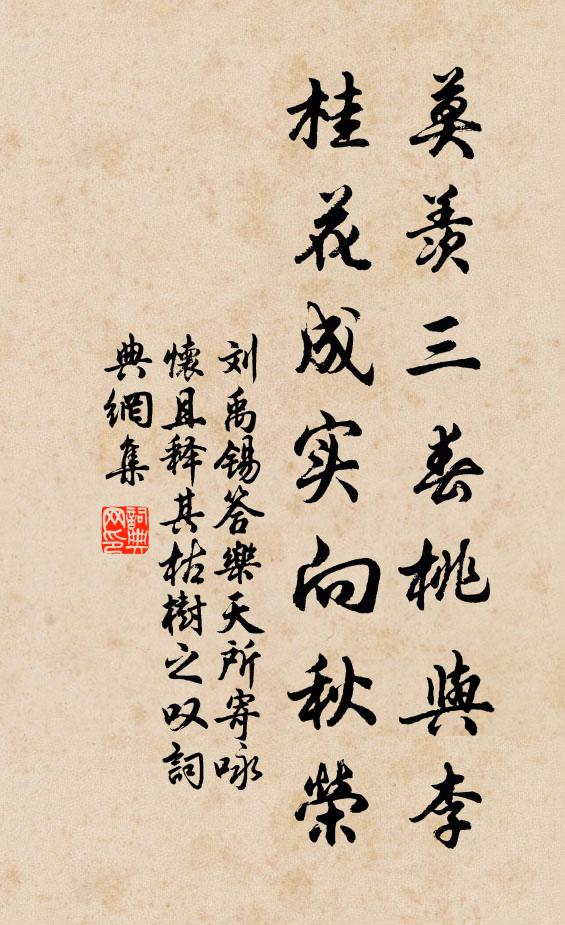 莫羡三春桃與李
桂花成实向秋榮
刘禹锡答樂天所寄咏
懷且释其枯樹之叹詞
典網集
詞典
网印